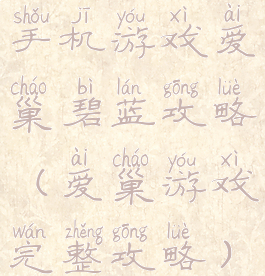 shǒu jī yóu xì ài
手机游戏爱
cháo bì lán gōng lüè
巢碧蓝攻略
ài cháo yóu xì
(爱巢游戏
wán zhěng gōng lüè
完整攻略)